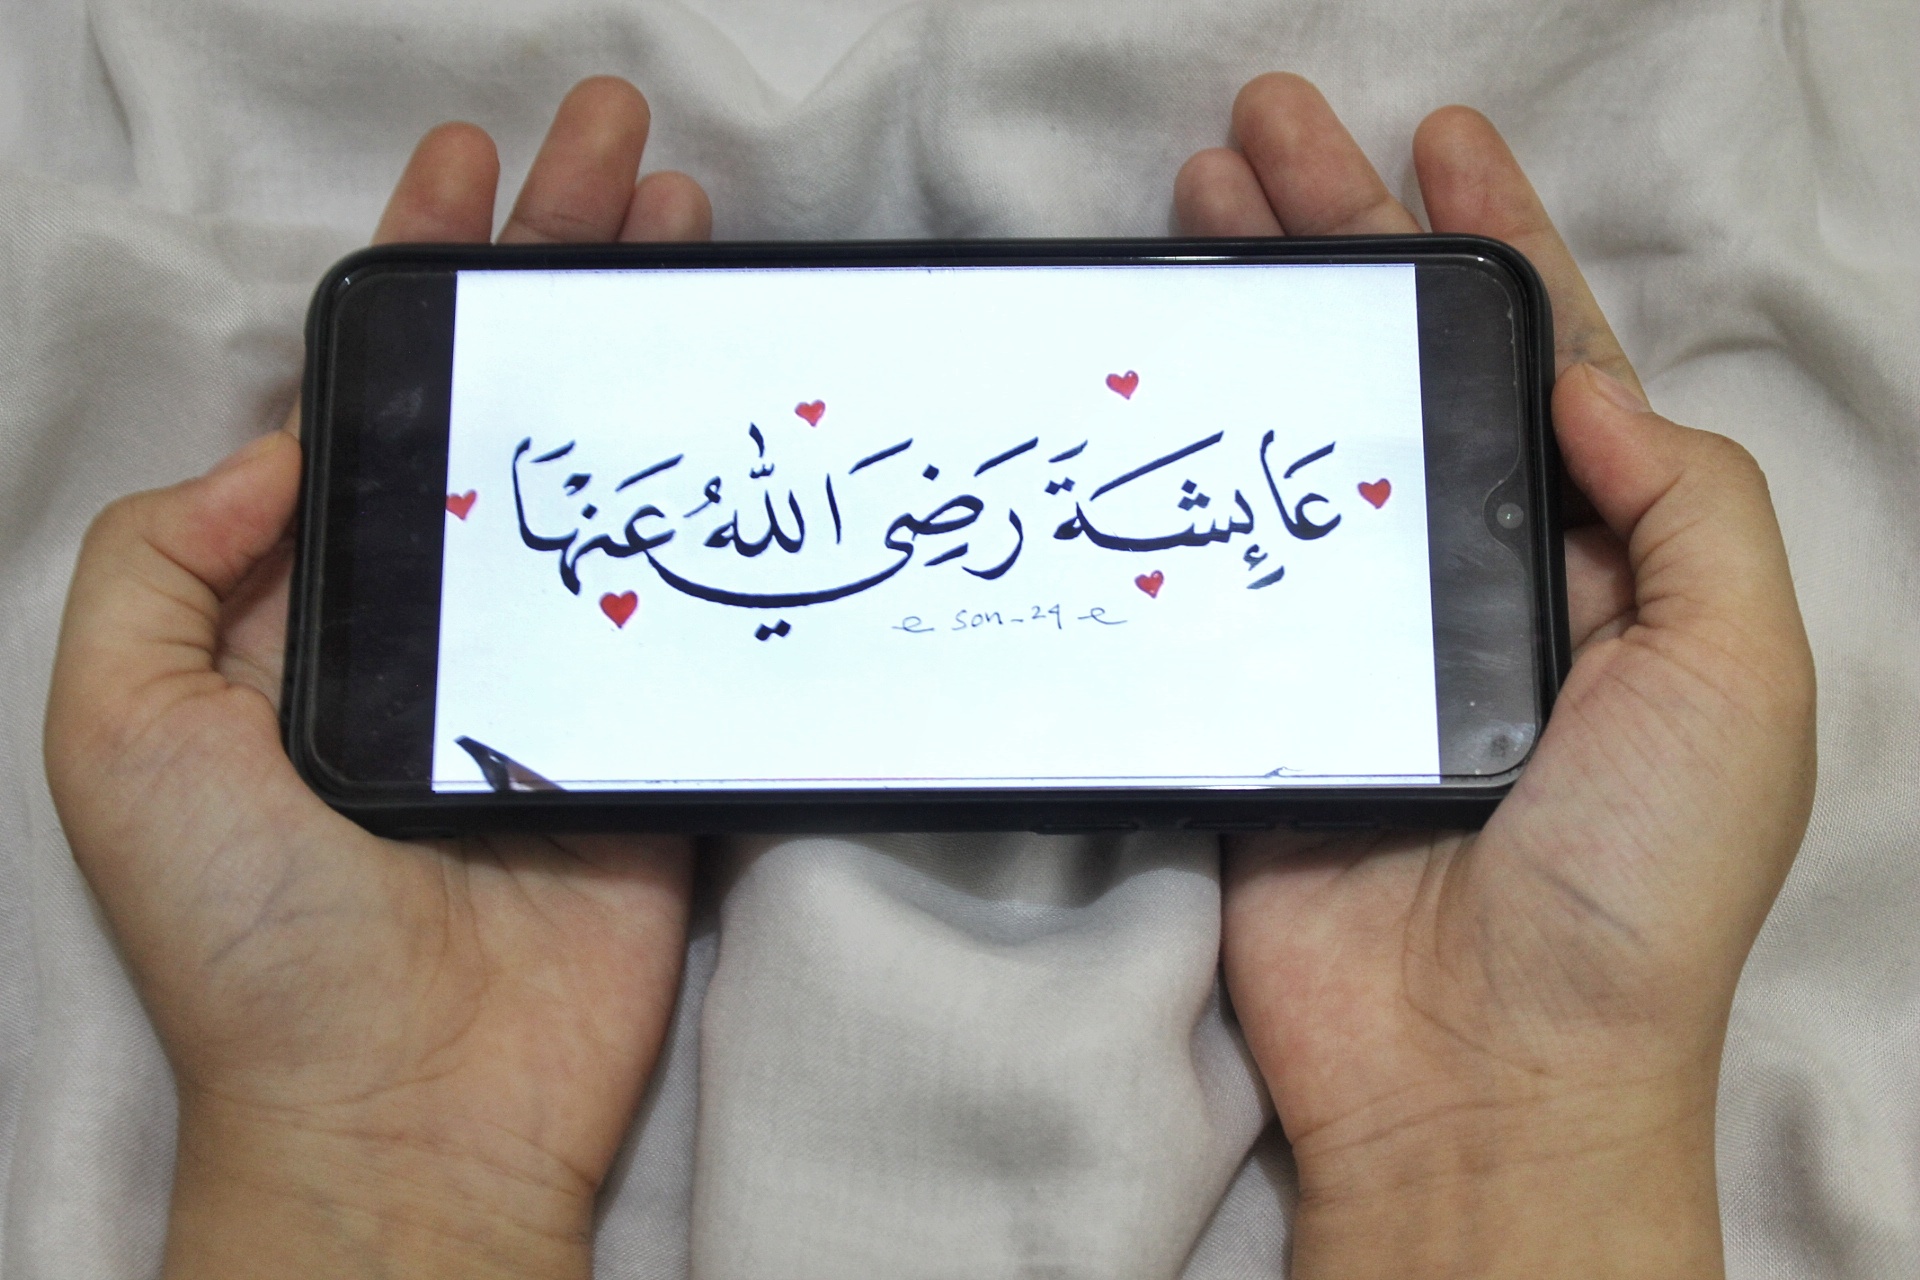 عَائِشَةَ رَضِيَ اللّٰهُ عَنْهَا
son-24